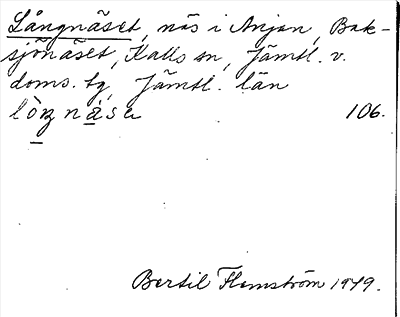 Långnäset, näs i Anjan, Bak-
sjönäset, Kalls sn, Jämtl. v.
doms. tg, Jämtl. län
106.
Bertil Flemström 1949.